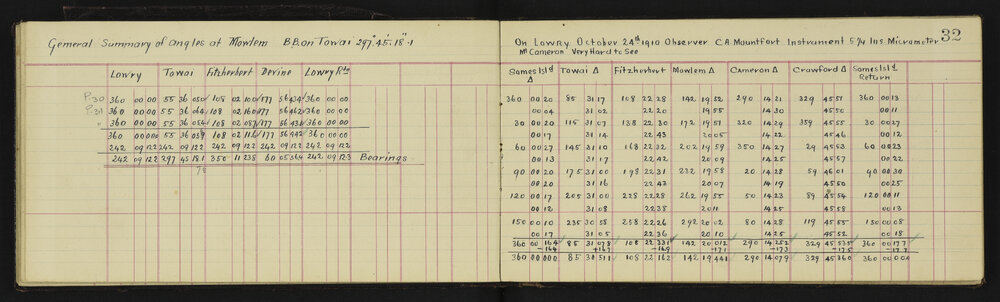 General Summary of angles at Mowlem B.B. on Towai 297° 45' 18"·1
Lowry Towai Fitzherbert Devine Lowry Rtn
P.30 360 00 00 55 36 050 108 02 100 177 56 434 360 00 00
P.31 360 00 00 55 36 064 108 02 160 177 56 462 360 00 00
" 360 00 00 55 36 054 108 02 087 177 56 431 360 00 00
360 00 000 55 36 059 108 02 116 177 56 442 360 00 00
242 09 122 242 09 122 242 09 122 242 09 122 242 09 122
242 09 122 297 45 181 350 11 238 60 05 564 242 09 123 Bearings
78
32
On Lowry October 24th 1910 Observer C.A. Mountfort Instrument 5¾ Ins. Micrometer
Mt Cameron Very Hard to See
Somes Isld Δ Towai Δ Fitzherbert Mowlem Δ Cameron Δ Crawford Δ Somes Isld Return
360 00 20 85 31 17 108 22 28 142 19 52 290 14 21 329 45 51 360 00 13
00 04 31 02 22 20 19 55 14 30 45 50 00 11
30 00 20 115 31 07 138 22 30 172 19 51 320 14 29 359 45 55 30 00 27
00 17 31 14 22 43 20 05 14 22 45 46 00 12
60 00 27 145 31 10 168 22 32 202 19 59 350 14 27 29 45 53 60 00 23
00 13 31 17 22 42 20 09 14 25 45 57 00 22
90 00 20 175 31 00 198 22 31 232 19 58 20 14 28 59 46 01 90 00 30
00 20 31 16 22 43 20 07 14 19 45 50 00 25
120 00 17 205 31 00 228 22 28 262 19 55 50 14 23 89 45 54 120 00 11
00 12 31 08 22 38 20 11 14 25 45 58 00 13
150 00 10 235 30 58 258 22 26 292 20 02 80 14 28 119 45 55 150 00 08
00 17 31 05 22 36 20 10 14 25 45 52 00 18
360 00 164 85 31 078 108 22 331 142 20 012 290 14 252 329 45 535 360 00 177
-164 -167 -169 -171 -173 -175 -177
360 00 000 85 30 511 108 22 162 142 19 441 290 14 079 329 45 360 360 00 00